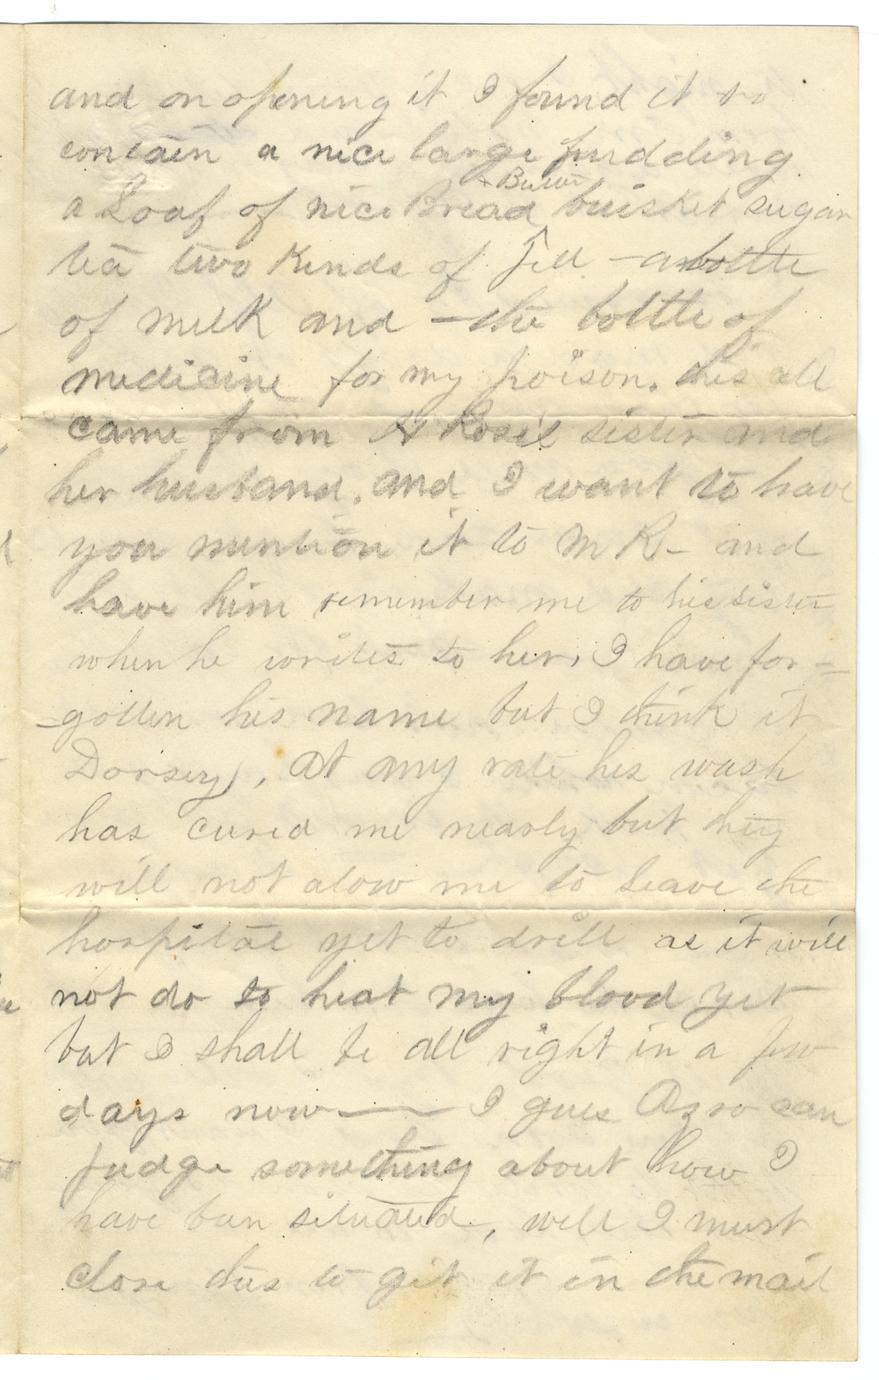 and on opening it I found it to
contain a nice large pudding
+ Butter
a Loaf of nice Bread buisket sugar
tea two kinds of Jell a bottle
of milk and the bottle of
medicine for my poison. this all
came from sister and
her husband. and I want to have
you mention it to M R- and
have him remember me to his sister
when he writes to her, I have for=
=gotten his name but I think it
Dorsey, At any rate his wash
has cured me nearly but they
will not alow me to leave the
hospital yet to drill as it will
not do to heat my blood yet
but I shall be all right in a few
days now — I gues Azro can
judge something about how I
have ben situated, well I must
close this to git it in the mail